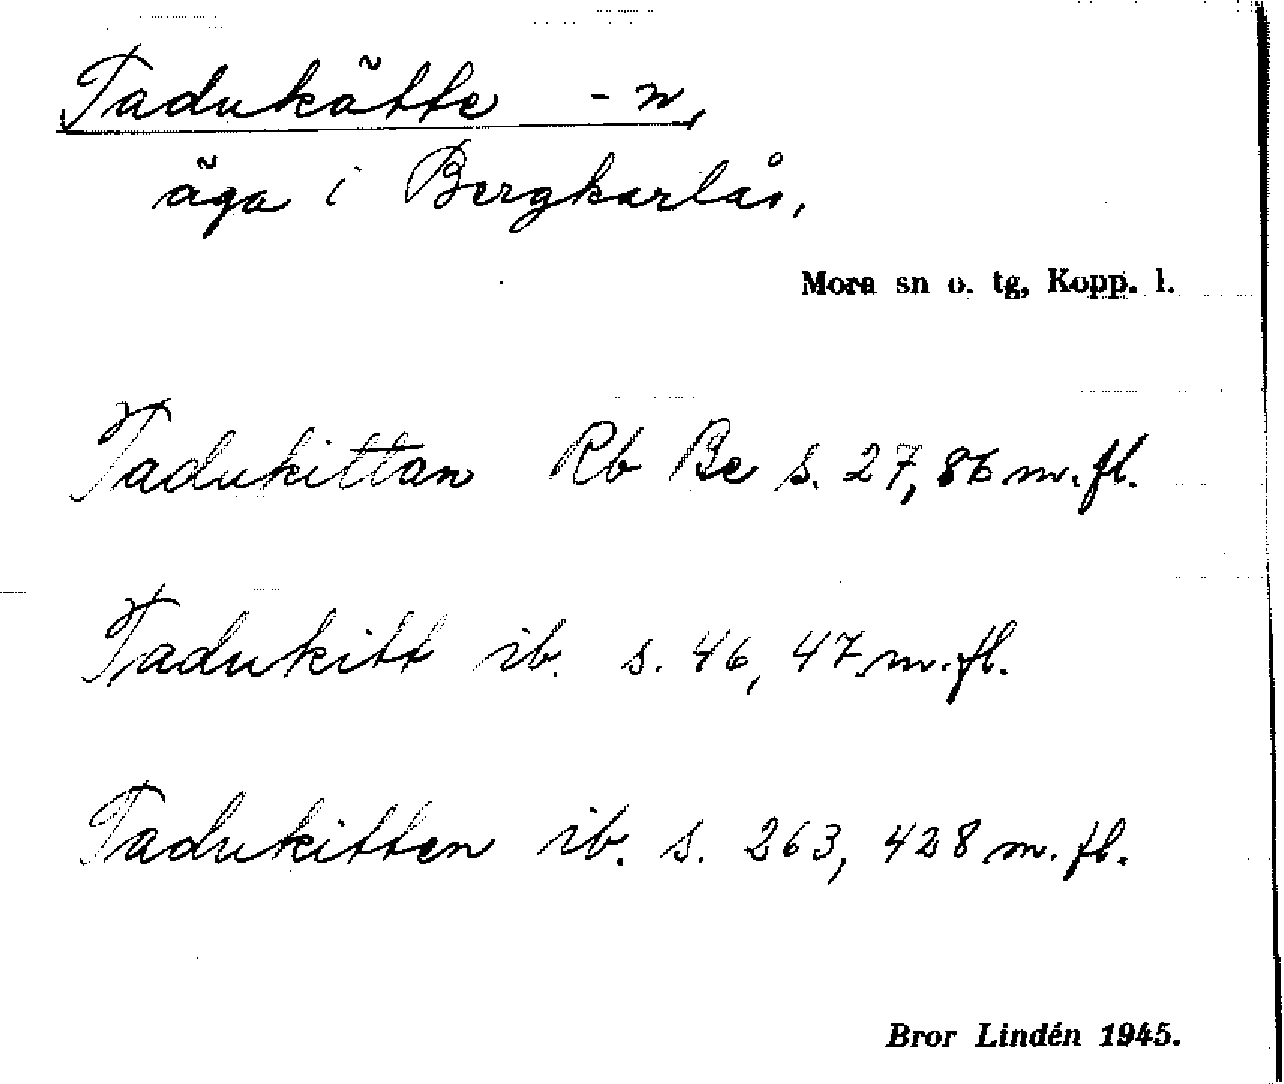 Tadukätte -n,
äga i Bergkarlås,
Mora sn o. tg, Kopp. l.
Tadukittan Rb Be s. 27, 86 m.fl.
Tadukitt ib. s. 46, 47 m.fl.
Tadukitten ib. s. 263, 428 m.fl.
Bror Lindén 1945.